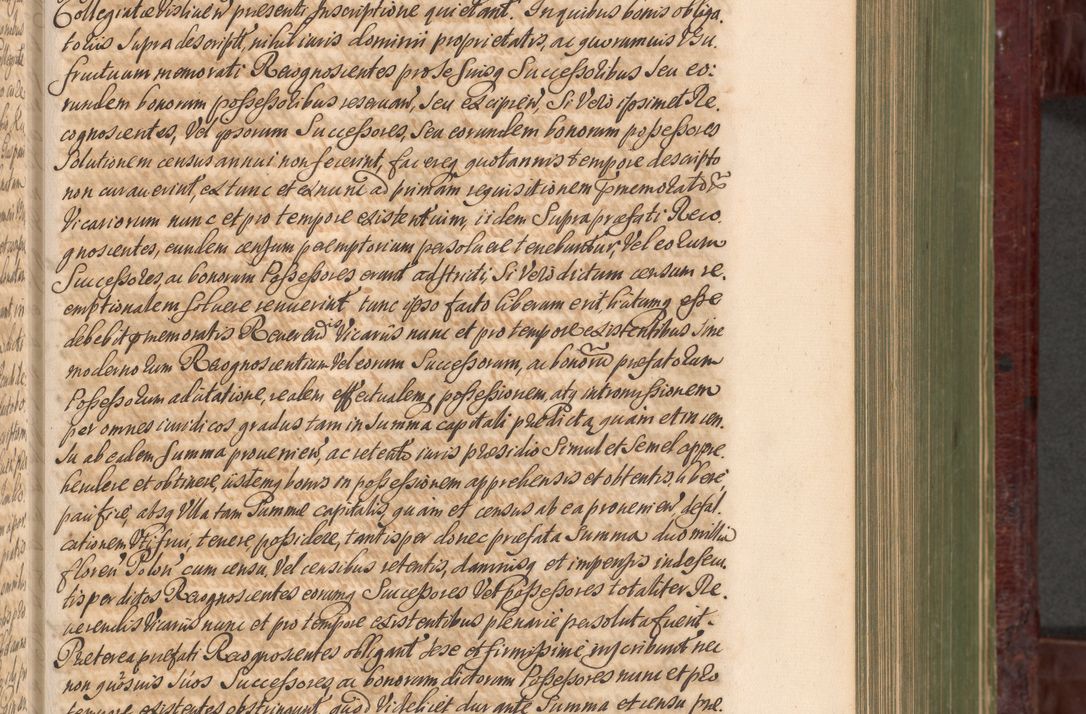 Collegiatæ Vislicien' presenti Inscriptione quietant. In quibus bonis obliga
torijs supra descriptis, nihil iuris dominii proprietatis, ac quorumuis Usu
fructuum memorati Recognoscentes pro se suisq Successoribus seu eo:
rundem bonorum possessoribus reseruan', seu excipien', Si Vero ipsimet Re.
cognoscentes, Vel ipsorum Successores, seu eorundem bonorum possessores
Solutionem census annui non fecerint, faceréq quotannis tempore descripto
non curauerint, ex tunc et ex nunc ad primam requisitionem præmemorator
Vicariorum nunc et pro tempore existentium, iidem Supra præfati Reco.
gnoscentes, eundem censum peremptorium persoluere tenebuntur, Vel eorum
Successores, ac bonorum Possessores erunt adstricti, Si Vero dictum censum re.
emptionalem soluere renuerint tunc ipso facto liberum erit licitumq esse
debebit præmemoratis Reuerendis Vicariis nunc et pro tempore existentibus sine
modernorum Recognoscentium Vel eorum Successorum, ac bonorum præfatorum
Possessorum aduitatione, realem effectualem, possessionem, atq intromissionem
per omnes iuridicos gradus tam in Summa capitali prædicta, quam et in cen.
su ab eadem summa prouenien', ac retento iuris præsidio Simul et Semel appre.
hendere et obtinere, iisdemq bonis in possessionem apprehensis et obtentis, liberé
pacificé, absq Ulla tam Summæ capitalis, quam et census ab ea prouenien' defal.
cationem Uti frui, tenere, possidere, tantisper donec præfata Summa duo millia
floren' Polon' cum censu, Vel censibus retentis, damnisq et impensis inde secu.
tis per dictos Recognoscentes eorumq Successores Vel Possessores totaliter Re.
uerendis Vicariis nunc et pro tempore existentibus plenarie persoluta fuerit.
Preterea præfati Recognoscentes obligant sese et firmissime inscribunt nec
non quosuis suos Successores, ac bonorum dictorum Possessores nunc et pro
tempore existentes obstringunt, quod Videlicet durante Summa et censu præ.